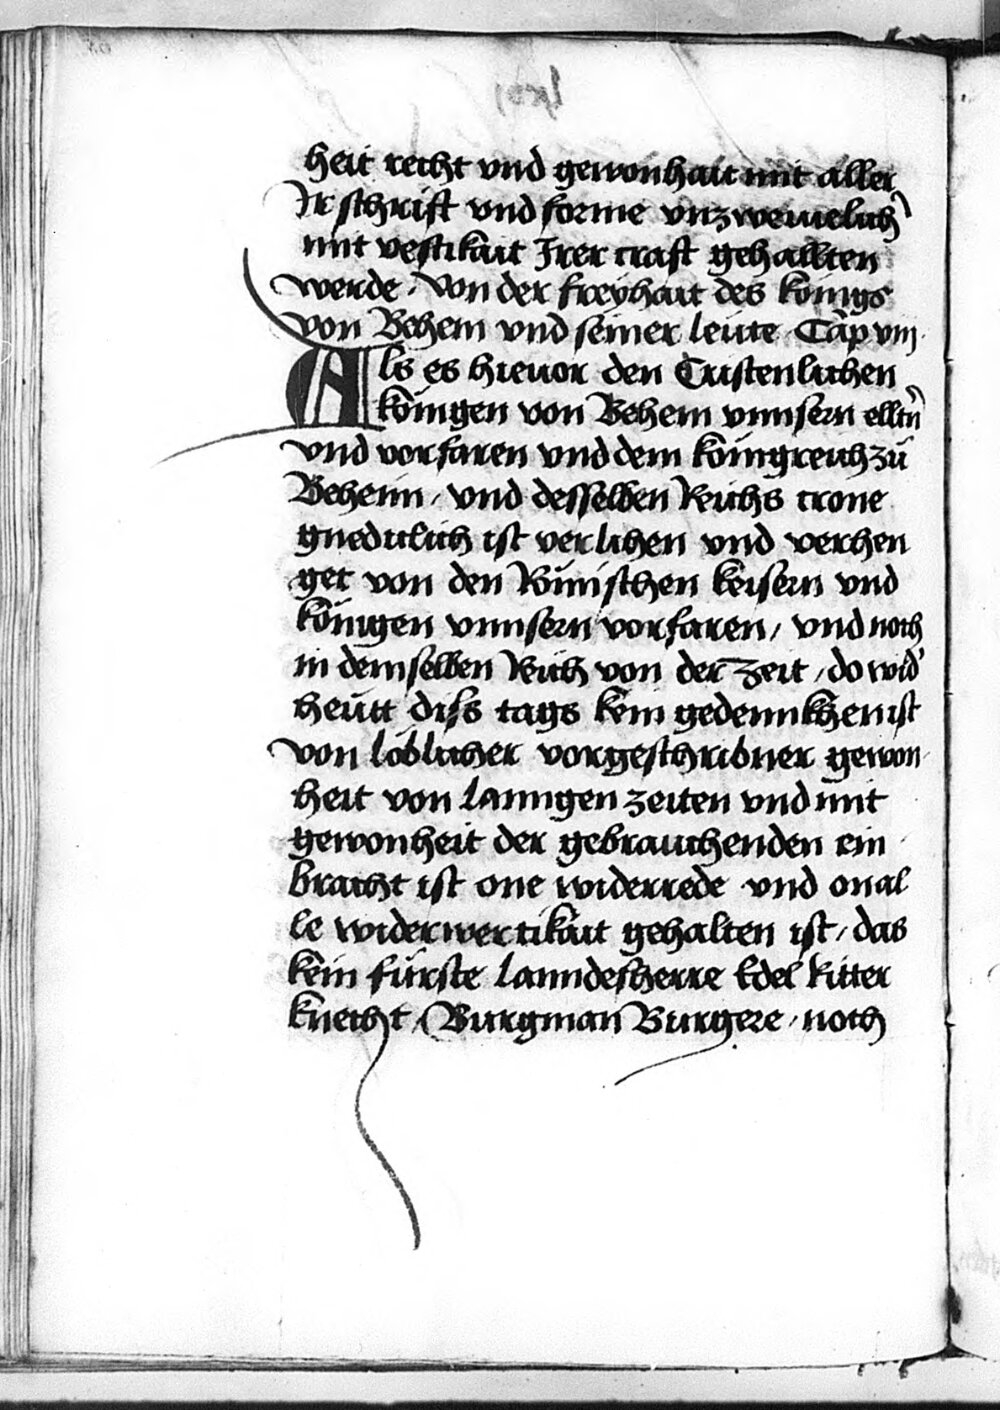 heit recht vnd gewonhait mit aller
Ir schrift vnd forme vnzweiuelich
mit vestikait Irer craft gehallten
werde / Von der freyhait des königs
von Behem vnd seiner leute Cap viij
Als es hieuor den Cristenlichen
königen von Behem vnnsern elltn̄
vnd vorfaren vnd dem königreich zů
Behem / vnd desselben Reichs crone
gnediclich ist verlihen vnd verhen
get von den Römischen keisern vnd
königen vnnsern vorfaren / vnd noch
in demselben Reich von der zeit / do wid'
heutt diss tags kein gedennkhen ist
von löblicher vorgeschribner gewon
heit von lanngen zeiten vnd mit
gewonheit der gebrauchenden ein
bracht ist one widerrede vnd on al
le widerwertikait gehalten ist / das
kein fürste lanndesherre Edel Ritter
knecht / Burgman Burgere / noch